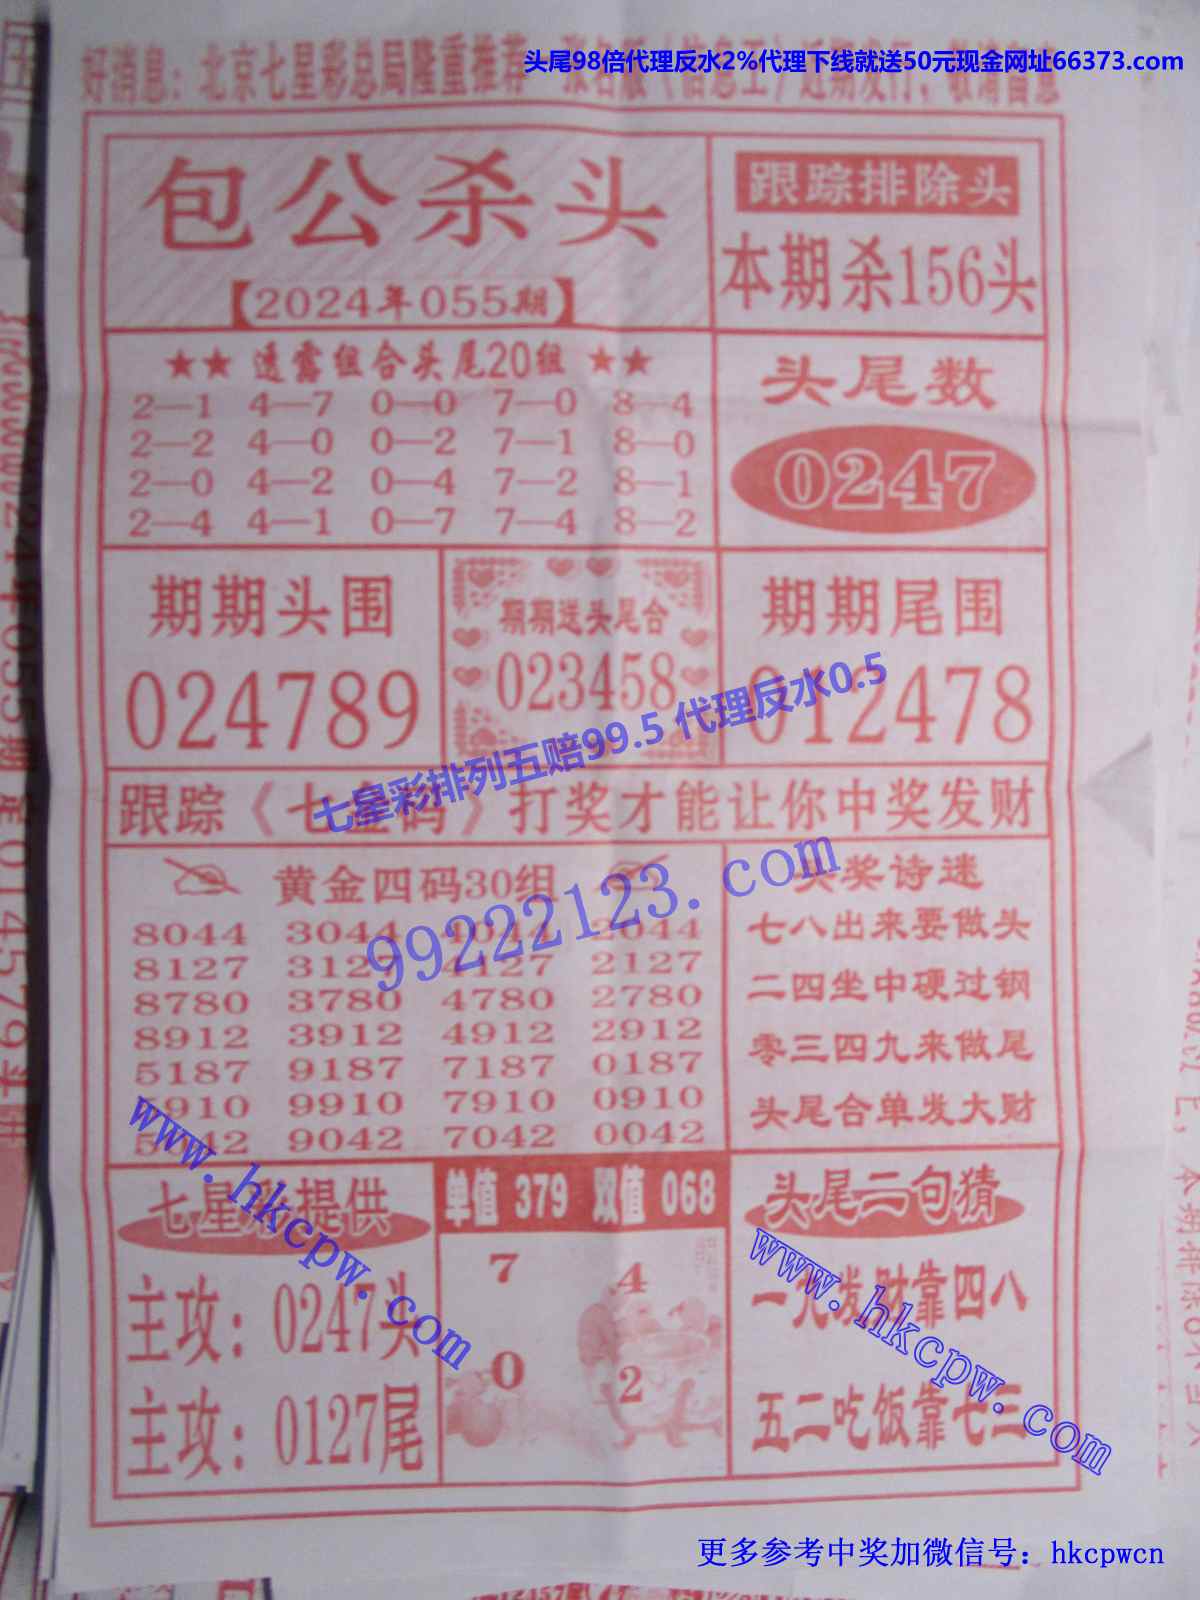 头尾98倍代理反水2%代理下线就送50元现金网址66373.com
好消息：北京七星彩总局隆重推荐
包公杀头
【2024年055期】
跟踪排除头
本期杀156头
★★ 透露组合头尾20组 ★★
2—1 4—7 0—0 7—0 8—4
2—2 4—0 0—2 7—1 8—0
2—0 4—2 0—4 7—2 8—1
2—4 4—1 0—7 7—4 8—2
头尾数
0247
期期头围
024789
期期送头尾合
023458
期期尾围
012478
七星彩排列五赔99.5 代理反水0.5
跟踪《七星码》打奖才能让你中奖发财
99222123.com
黄金四码30组
8044 3044 4044 2044
8127 3127 4127 2127
8780 3780 4780 2780
8912 3912 4912 2912
5187 9187 7187 0187
5910 9910 7910 0910
5042 9042 7042 0042
奖诗迷
七八出来要做头
二四坐中硬过钢
零三四九来做尾
头尾合单发大财
www.hkcpw.com
七星彩提供
主攻：0247头
主攻：0127尾
单值 379 双值 068
7 4
0 2
头尾二句猜
一九发财靠四八
五二吃饭靠七三
www.hkcpw.com
更多参考中奖加微信号：hkcpwcn